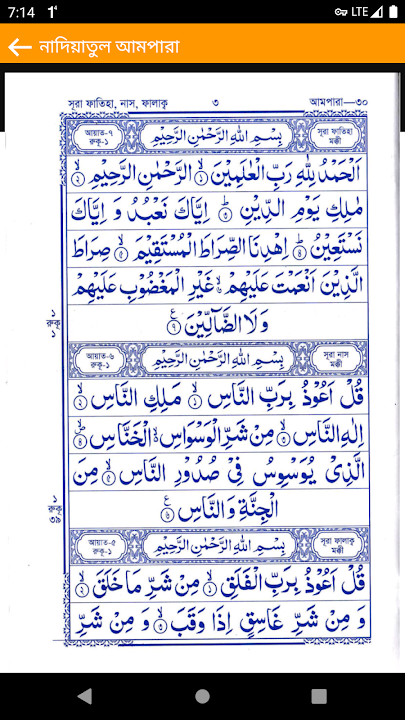 7:14
LTE
নাদিয়াতুল আমপারা
সূরা ফাতিহা, নাস, ফালাকু ৩ আমপারা—৩০
আয়াত-৭ রুকু-১ بِسْمِ اللهِ الرَّحْمٰنِ الرَّحِيْمِ সূরা ফাতিহা মক্কী
اَلْحَمْدُ لِلّٰهِ رَبِّ الْعٰلَمِيْنَ ۙ﴿١﴾ الرَّحْمٰنِ الرَّحِيْمِ ۙ﴿٢﴾
مٰلِكِ يَوْمِ الدِّيْنِ ؕ﴿٣﴾ اِيَّاكَ نَعْبُدُ وَ اِيَّاكَ
نَسْتَعِيْنُ ؕ﴿٤﴾ اِهْدِنَا الصِّرَاطَ الْمُسْتَقِيْمَ ۙ﴿٥﴾ صِرَاطَ
الَّذِيْنَ اَنْعَمْتَ عَلَيْهِمْ ۙ غَيْرِ الْمَغْضُوْبِ عَلَيْهِمْ
وَلَا الضَّآلِّيْنَ
১
রুকু
১
আয়াত-৬ রুকু-১ بِسْمِ اللهِ الرَّحْمٰنِ الرَّحِيْمِ সূরা নাস মক্কী
قُلْ اَعُوْذُ بِرَبِّ النَّاسِ ۙ﴿١﴾ مَلِكِ النَّاسِ ۙ﴿٢﴾
اِلٰهِ النَّاسِ ۙ﴿٣﴾ مِنْ شَرِّ الْوَسْوَاسِ ۙ الْخَنَّاسِ ۙ﴿٤﴾
الَّذِيْ يُوَسْوِسُ فِيْ صُدُوْرِ النَّاسِ ۙ﴿٥﴾ مِنَ
الْجِنَّةِ وَالنَّاسِ
১
রুকু
৩৯
আয়াত-৫ রুকু-১ بِسْمِ اللهِ الرَّحْمٰنِ الرَّحِيْمِ সূরা ফালাকু মক্কী
قُلْ اَعُوْذُ بِرَبِّ الْفَلَقِ ۙ﴿١﴾ مِنْ شَرِّ مَا خَلَقَ ۙ﴿٢﴾
وَ مِنْ شَرِّ غَاسِقٍ اِذَا وَقَبَ ۙ﴿٣﴾ وَ مِنْ شَرِّ